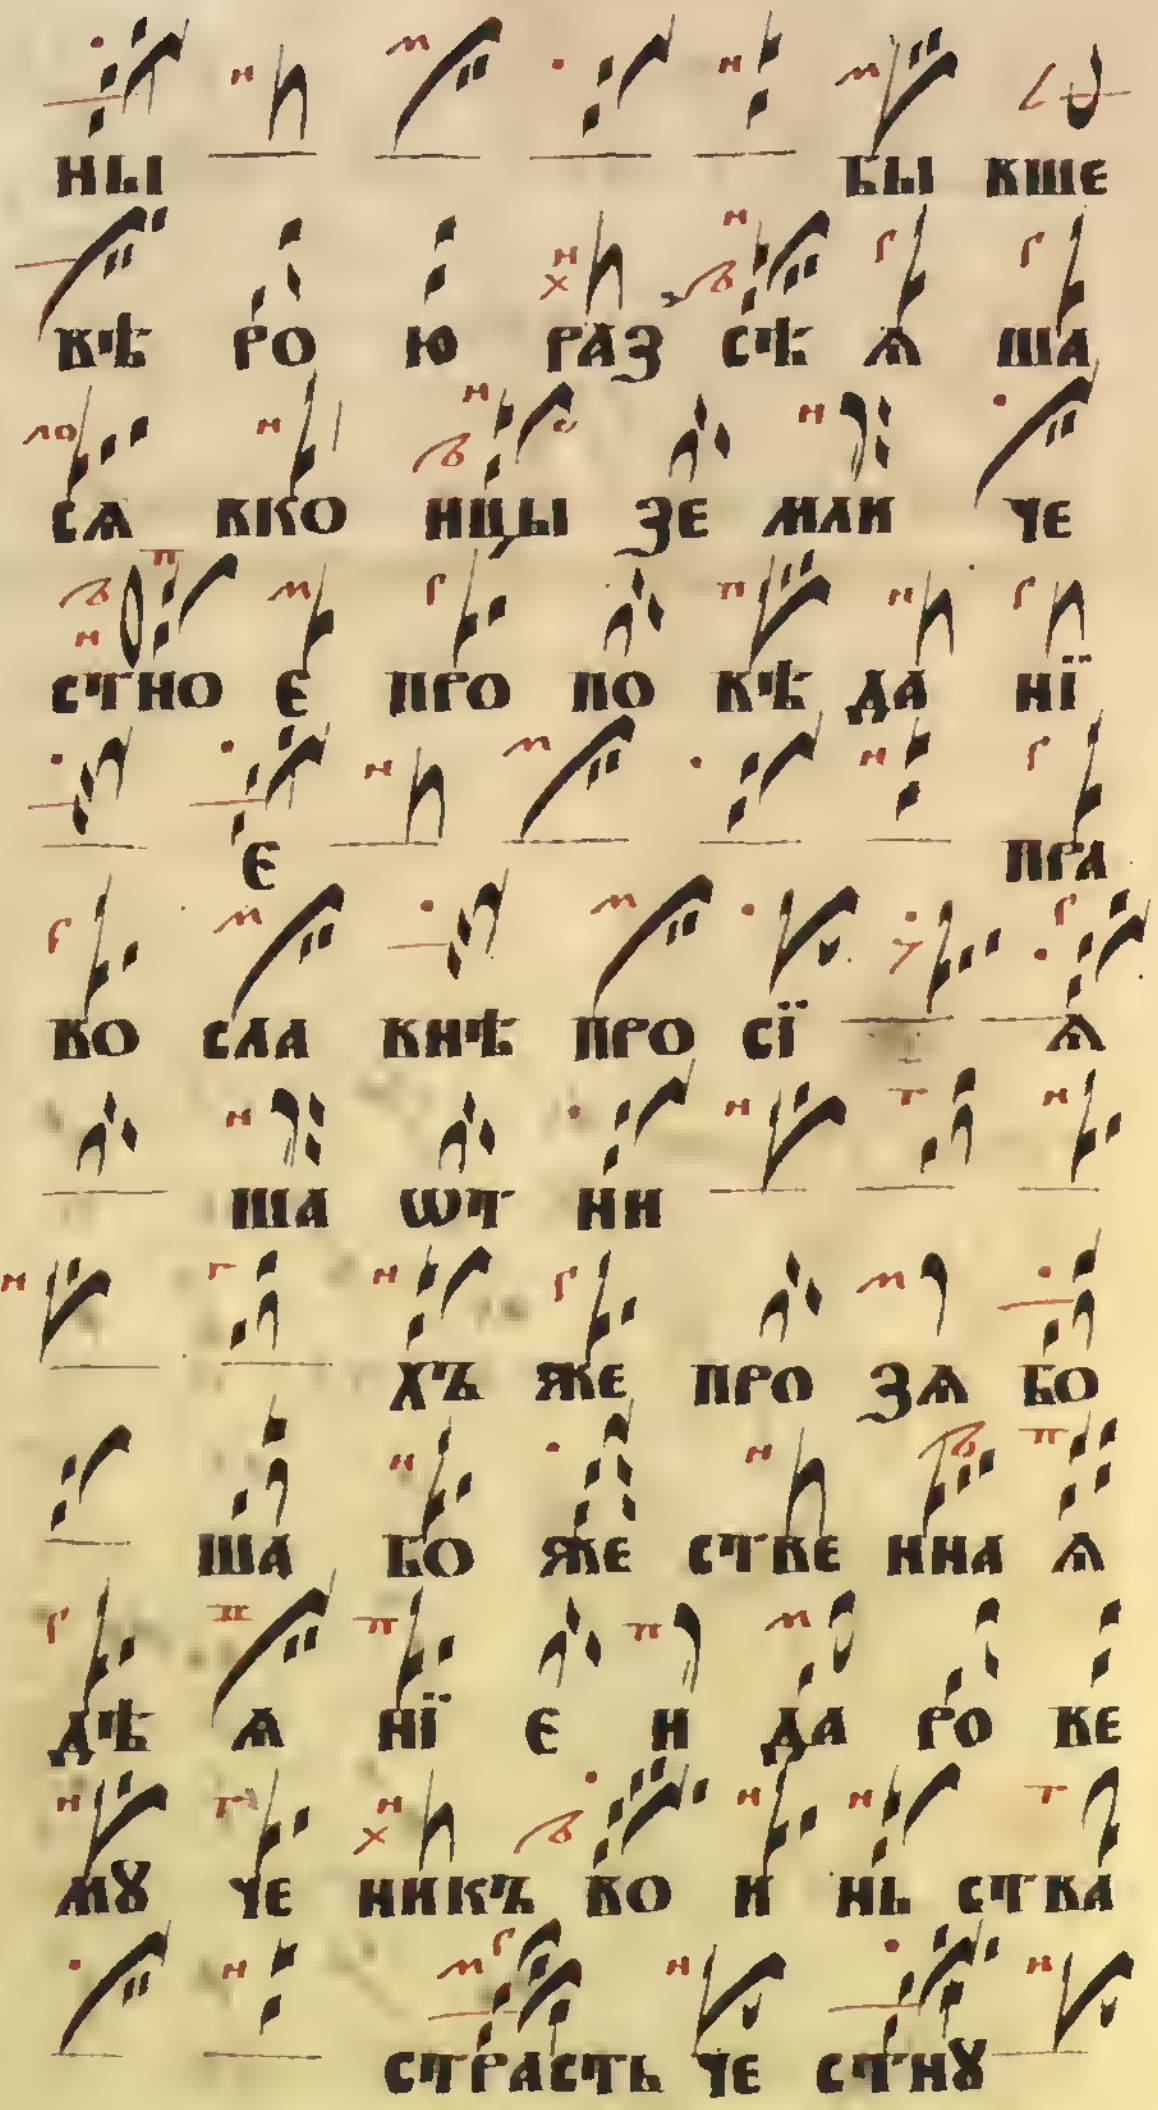 НЫ БЫ ВШЕ
ВѢ РО Ю РАЗ СѢ Ѧ ША
СѦ ВКО НЦЫ ЗЕ МЛИ ЧЕ
СТНО Е ПРО ПО ВѢ ДА НЇ
Е ПРА
ВО СЛА ВНѢ ПРО СЇ Ѧ
ША ѠТ НИ
ХЪ ЯЖЕ ПРО ЗѦ БО
ША БО ЖЕ СТВЕ ННА Ѧ
ДѢ Ѧ НЇ Е И ДА РО ВЕ
МꙊ ЧЕ НИКЪ ВО И НЬ СТВА
СТРАСТЬ ЧЕ СТНꙊ